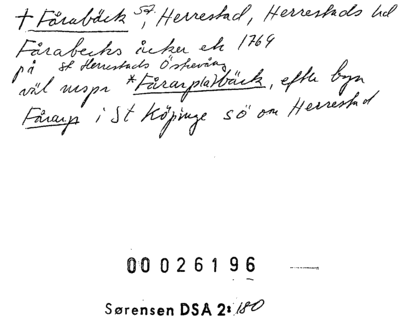 † Fårabäck sg, Herrestad, Herrestads hd
Fårabecks åcker ek 1769
på St Herrestads Östervång
väl urspr *Fårarplatbäck, efter byn
Fårarp i St Köpinge sö om Herrestad
00026196
Sørensen DSA 2: 180